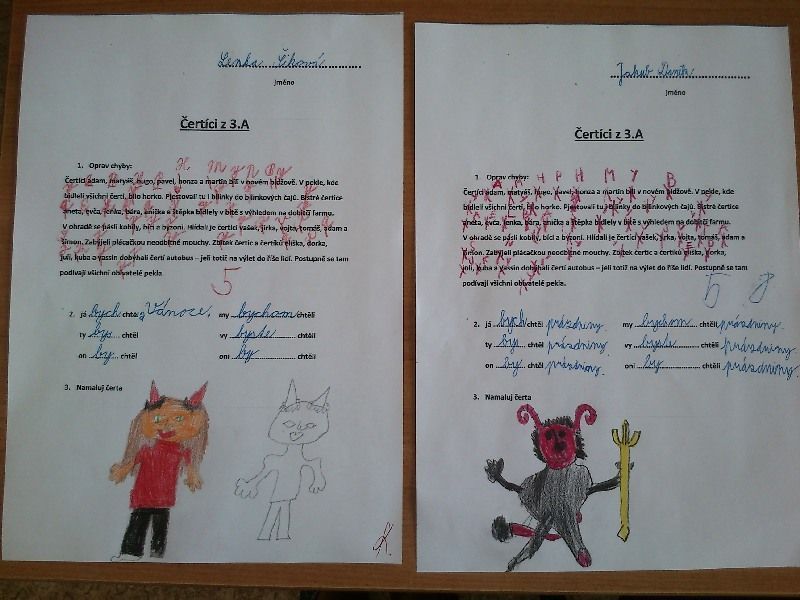 Lenka Šiková
jméno
Čertíci z 3.A
1. Oprav chyby:
Čertíci adam, matyáš, hugo, pavel, honza a martin bili v novém bidžově. V pekle, kde
bidleli všichni čerti, bilo horko. Pjestovali tu i bilinky do bilinkových čajů. Bistré čertice
aneta, evča, lenka, bára, anička a štěpka bidlely v bitě s výhledem na dobitčí farmu.
V ohradě se pásli kobily, bíci a byzoni. Hlídali je čertíci vašek, jirka, vojta, tomáš, adam a
šimon. Zabyjeli plácačkou neodbitné mouchy. Zbitek čertic a čertíků eliška, dorka,
juli, kuba a yassin dobýhali čertí autobus – jeli totiž na výlet do říše lidí. Postupně se tam
podívají všichni obivatelé pekla.
5
2. já bych chtěl Vánoce. my bychom chtěli
ty bys chtěl vy byste chtěli
on by chtěl oni by chtěli
3. Namaluj čerta
Jakub
jméno
Čertíci z 3.A
1. Oprav chyby:
A M H P H M Y B
Čertíci adam, matyáš, hugo, pavel, honza a martin bili v novém bidžově. V pekle, kde
bidleli všichni čerti, bilo horko. Pjestovali tu i bilinky do bilinkových čajů. Bistré čertice
aneta, evča, lenka, bára, anička a štěpka bidlely v bitě s výhledem na dobitčí farmu.
V ohradě se pásli kobily, bíci a byzoni. Hlídali je čertíci vašek, jirka, vojta, tomáš, adam a
šimon. Zabyjeli plácačkou neodbitné mouchy. Zbitek čertic a čertíků eliška, dorka,
juli, kuba a yassin dobýhali čertí autobus – jeli totiž na výlet do říše lidí. Postupně se tam
podívají všichni obivatelé pekla.
5
2. já bych chtěl prázdniny. my bychom chtěli prázdniny.
ty by chtěl prázdniny. vy byste chtěli prázdniny.
on by chtěl prázdniny. oni by chtěli prázdniny.
3. Namaluj čerta